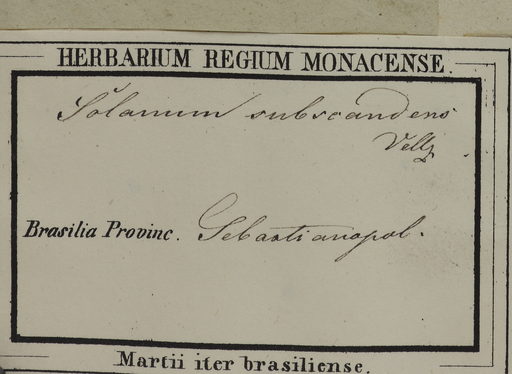 HERBARIUM REGIUM MONACENSE.
Solanum subscandens
Vell.
Brasilia Provinc. Sebastianopol.
Martii iter brasiliense.